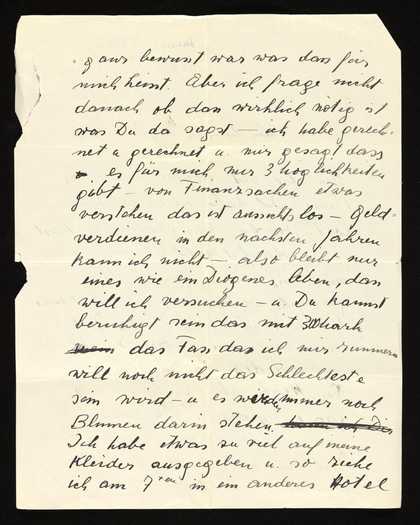 ganz bewusst was was das für
mich heisst. Aber ich frage nicht
danach ob das wirklich nötig ist
was Du da sagst – ich habe gerech-
net u gerechnet u. mir gesagt dass
es für mich nur 3 Möglichkeiten
gibt – von Finanzsachen etwas
verstehen das ist aussichtslos – Geld-
verdienen in den nächsten Jahren
kann ich nicht – also bleibt nur
eines wie ein Diogenes leben, das
will ich versuchen – u Du kannst
beruhigt sein das mit 300 Mark
das Fass das ich mir zimmern
will noch nicht das Schlechteste
sein wird – u es werden immer noch
Blumen darin stehen
Ich habe etwas zu viel auf meine
Kleider ausgegeben u. so ziehe
ich am 7ten in ein anderes Hotel